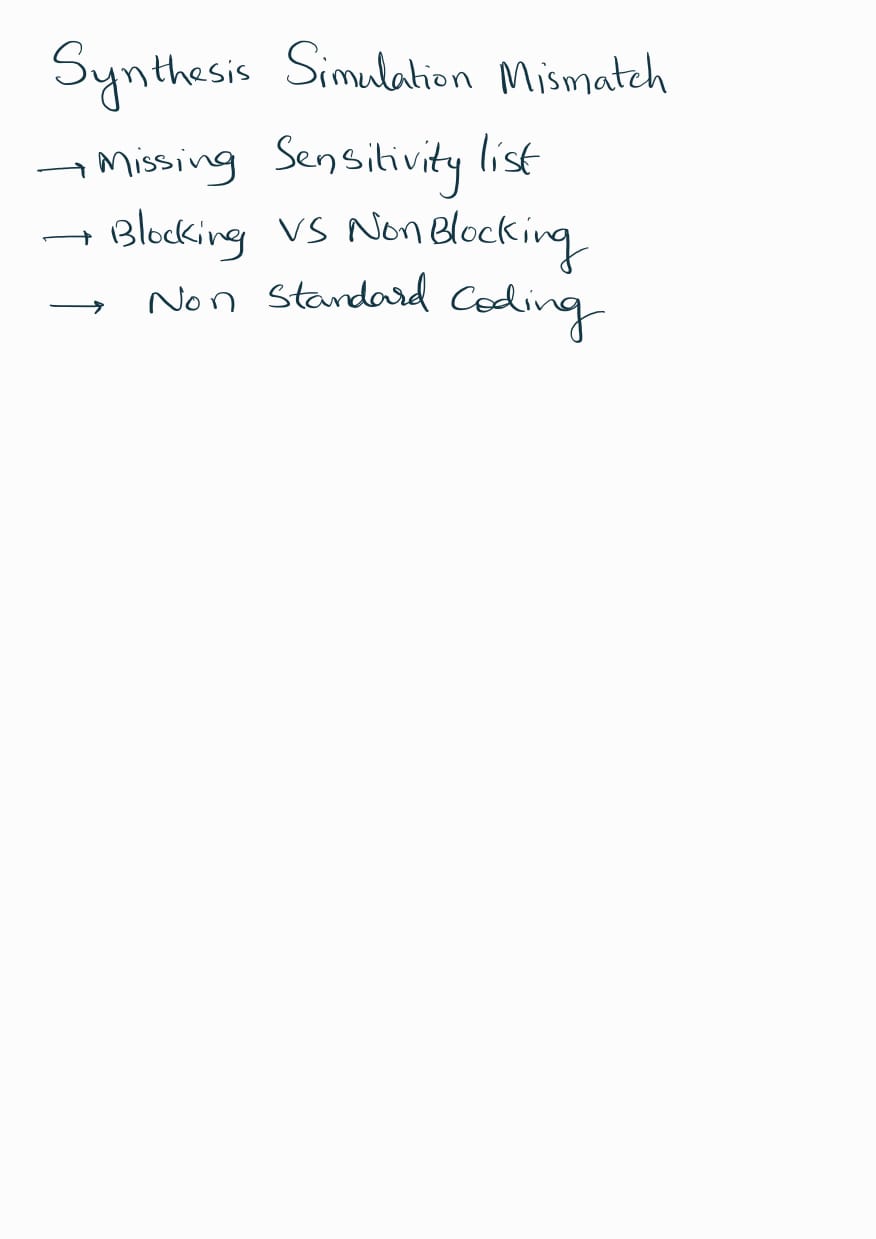 Synthesis Simulation Mismatch
→ Missing Sensitivity list
→ Blocking VS NonBlocking
→ Non Standard Coding